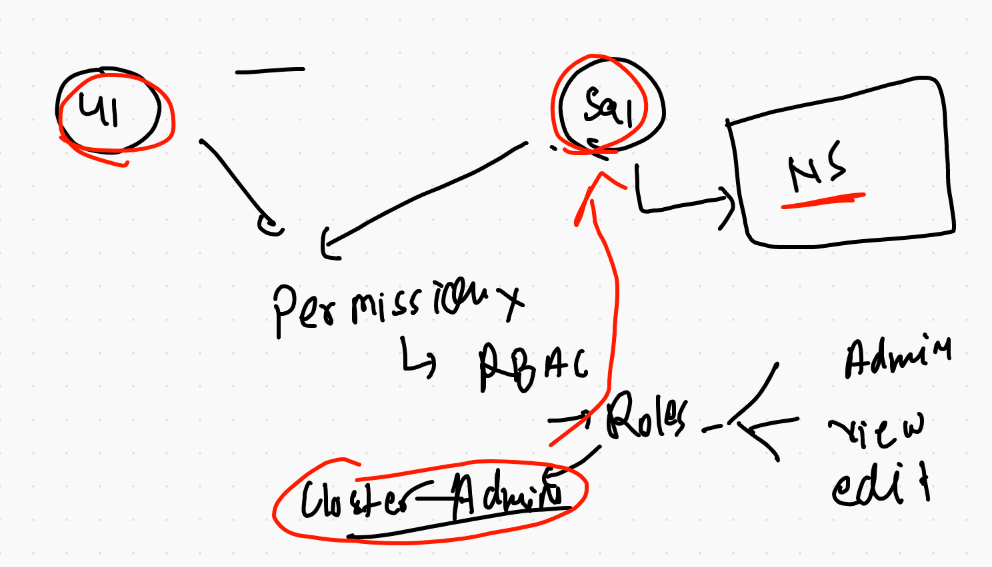 U1
Sa1
NS
Permission x
RBAC
Roles
Admin
view
edit
Cluster-Admin